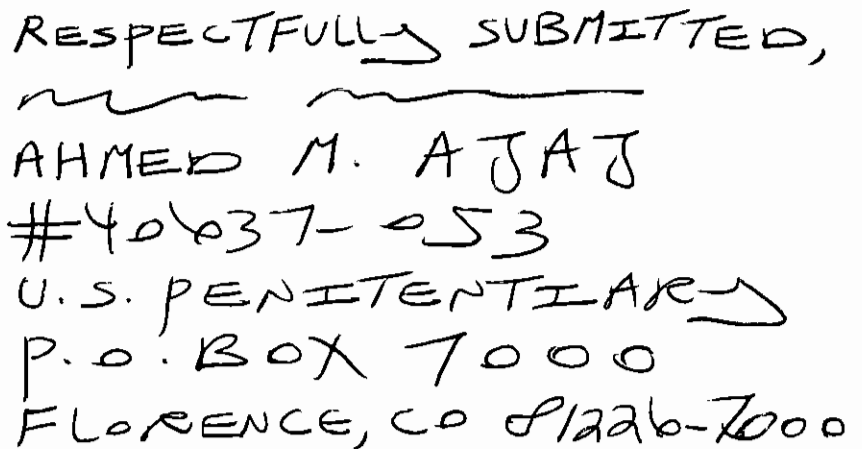 RESPECTFULLY SUBMITTED,
AHMED M. AJAJ
#40637-053
U.S. PENITENTIARY
P.O. BOX 7000
FLORENCE, CO 81226-7000